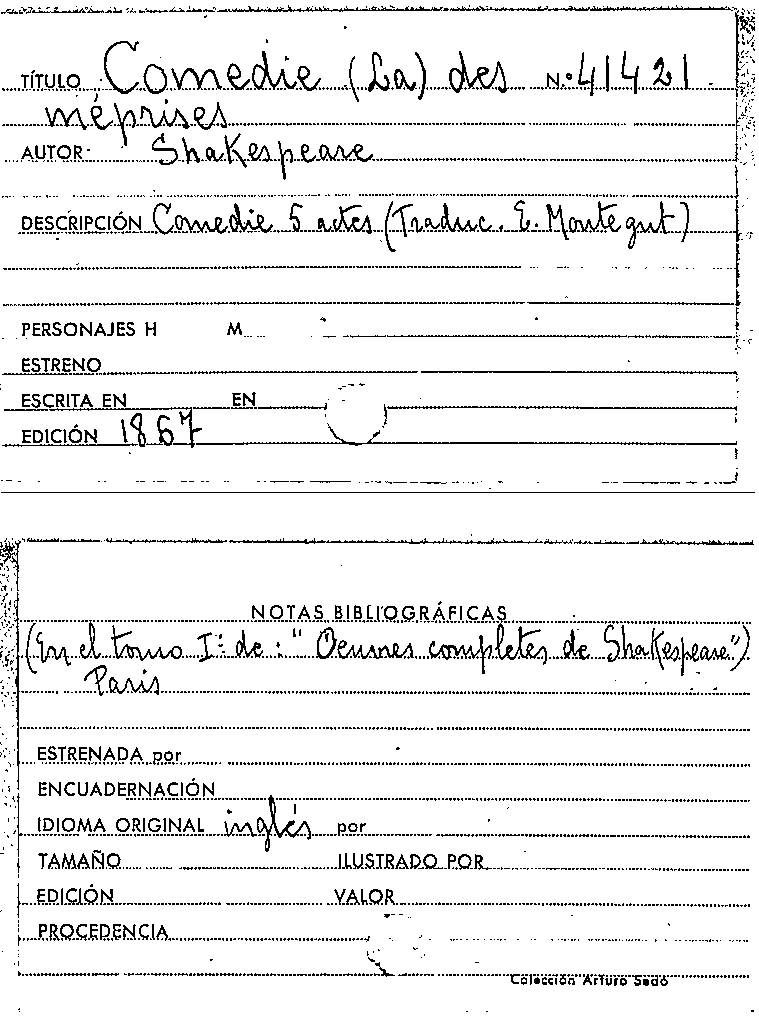 TÍTULO Comedie (La) des N.º 41421
méprises
AUTOR Shakespeare
DESCRIPCIÓN Comedie 5 actes (Traduc. E. Montegut)
PERSONAJES H M
ESTRENO
ESCRITA EN EN
EDICIÓN 1867
NOTAS BIBLIOGRÁFICAS
(En el tomo Iº de: "Oeuvres completes de Shakespeare")
Paris
ESTRENADA por
ENCUADERNACIÓN
IDIOMA ORIGINAL inglés por
TAMAÑO ILUSTRADO POR
EDICIÓN VALOR
PROCEDENCIA
Colección Arturo Sedó